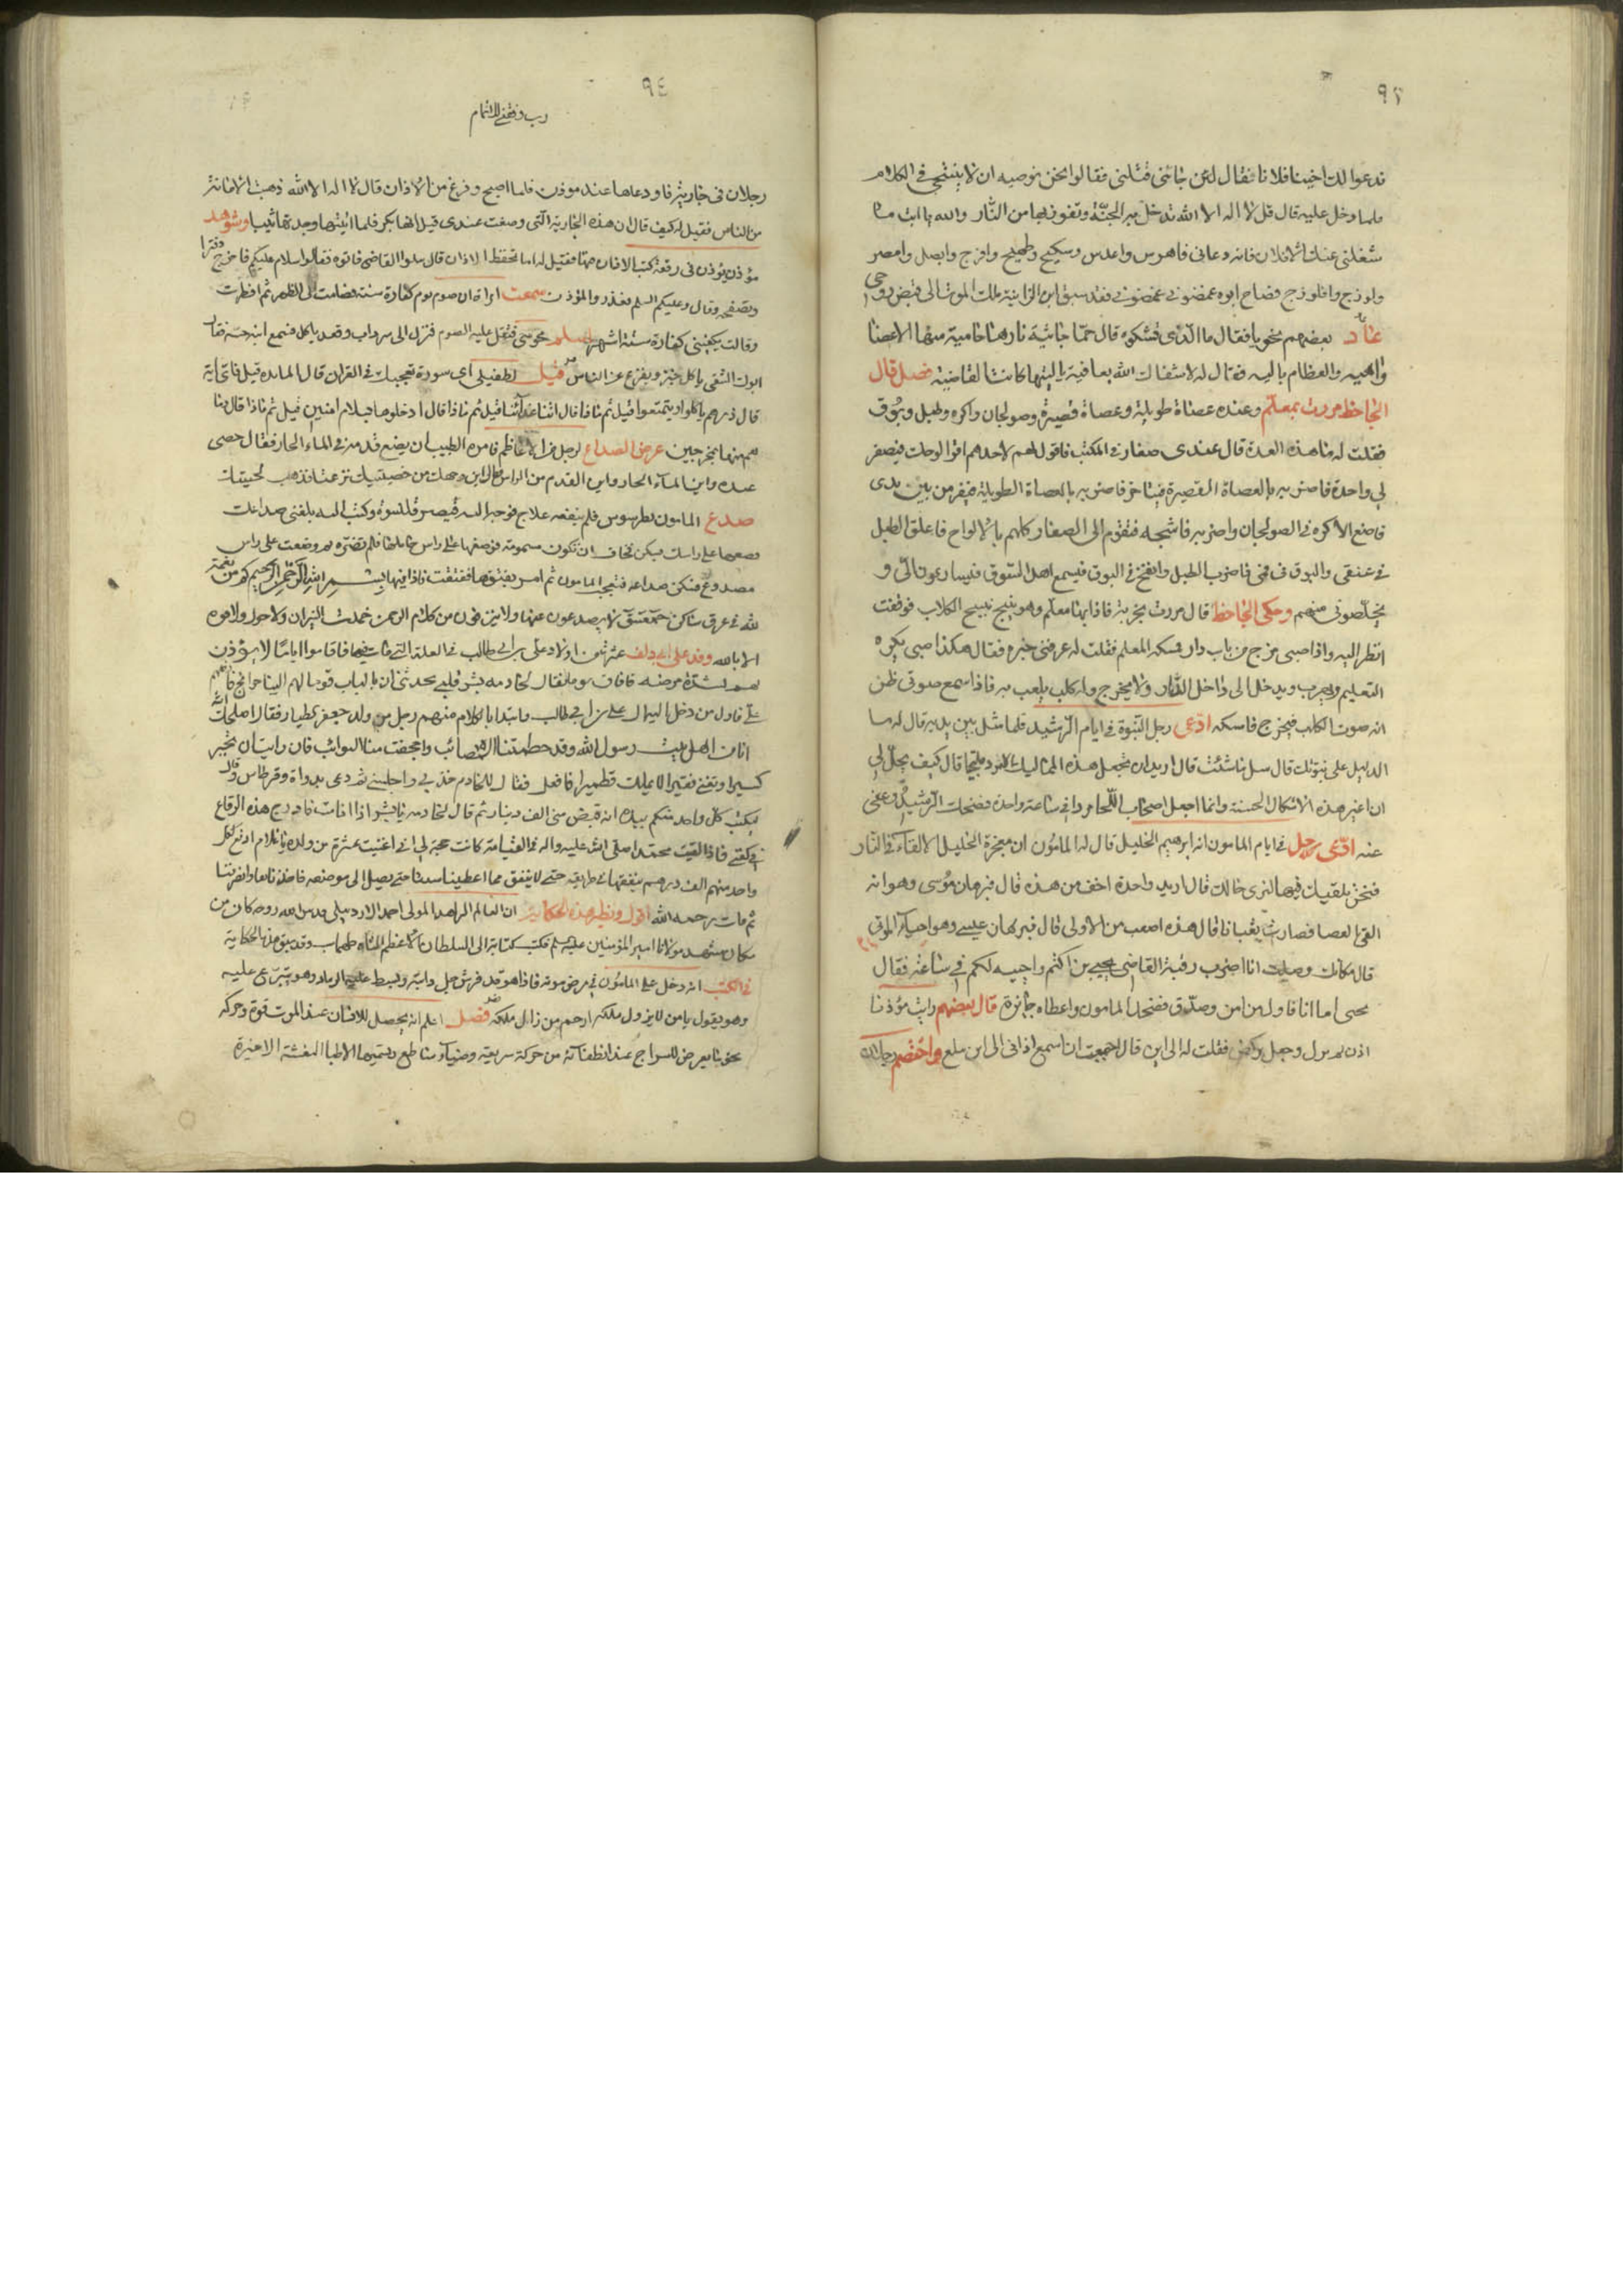 ٩٣
فدعوا لك اخينا فلانا فقال لئن جائنى قتلنى فقالوا نحن نوصيه ان لا يتنحى فى الكلام
فلما دخل عليه قال قل لا اله الا الله تدخل بها الجنة وتفوز بها من النار والله يا ابت ما
شغلنى عنك الا فلان فانه دعانى فاهرس واعدس وسكبج وطهبج وافرج وابصل وامصر
ولوزج وافلوذج فصاح ابوه غمضونى غمضونى فقد سبق ابن الزانية ملك الموت الى قبض روحى
عاد بعضهم نحويا فقال ما الذى تشكوه قال حمّا جاثية نارها حامية منها الاعضا
واهيه والعظام باليه فقال له لا شفاك الله بعافية يا ليتها كانت القاضية فصل قال
الجاحظ مررت بمعلّم وعنده عصاة طويلة وعصاة قصيرة وصولجان واكره وطبل وبوق
فقلت له ما هذه العدة قال عندى صغار فى المكتب فاقول لهم لاحدهم اقرا لوحك فيصفر
لى واحدة فاضربه بالعصاة القصيرة فيتاخر فاضربه بالعصاة الطويلة فيفر من بين يدى
فاضع الاكره فى الصولجان واضربه فاشجه فتقوم الى الصغار كلهم بالالواح فاعلق الطبل
فى عنقى والبوق فى فمى فاضرب الطبل وانفخ فى البوق فيسمع اهل السوق فيسارعون الىّ و
يخلّصونى منهم وحكى الجاحظ قال مررت بخربة فاذا بها معلم وهو ينبح نبيح الكلاب فوقفت
انظر اليه واذا صبى خرج من باب دار فمسكه المعلم فقلت له عرفنى خبره فقال هكذا صبى يكره
التعليم ويهرب ويدخل الى داخل الدار ولا يخرج وله كلب يلعب به فاذا سمع صوتى ظن
انه صوت الكلب فيخرج فامسكه ادّعى رجل النبوة فى ايام الرشيد فلما مثل بين يديه قال له ما
الدليل على نبوتك قال سل ما شئت قال اريد ان تجعل هذه المماليك المرد ملتحيا قال كيف يحلّ لى
ان اغير هذه الاشكال الحسنة وانما اجعل اصحاب اللّحا مردا فى ساعة واحدة فضحك الرشيد وعفى
عنه ادّعى رجل فى ايام المامون انه ابرهيم الخليل قال له المامون ان معجزة الخليل الالقاء فى النار
فنحن نلقيك فيها لنرى حالك قال اريد واحدة اخف من هذه قال فبرهان موسى وهو انه
القى العصا فصارت ثعبانا قال هذه اصعب من الاولى قال فبرهان عيسى وهو احياء الموتى
قال مكانك وصلت انا اضرب رقبة القاضى يحيى بن اكثم واحييه لكم فى ساعة فقال
يحيى اما انا فاول من امن وصدّق فضحك المامون واعطاه جائزة قال بعضهم رايت مؤذنا
اذن ثم نزل وجعل يركض فقلت له الى اين قال احببت ان اسمع اذانى الى اين بلغ واختصم رجلان
٩٤
رب وفقنى للاتمام
رجلان فى جارية فاودعاها عند مؤذن فلما اصبح وفرغ من الاذان قال لا اله الا الله ذهبت الامانة
من الناس فقيل له كيف قال ان هذه الجارية التى وضعت عندى قيل انها بكر فلما اتيتها وجدتها ثيبا وشوهد
مؤذن يؤذن فى رقعة كتب الاذان فيها فقيل له اما تحفظ الاذان قال سلوا القاضى فاتوه فقالوا سلام عليكم فاخرج دفترا
وتصفحه وقال وعليكم السلم فعذروا المؤذن سمعت امراة ان صوم يوم كفارة سنة فصامت الى الظهر ثم افطرت
وقالت يكفينى كفارة ستة اشهر اسلم مجوسى فثقل عليه الصوم فنزل الى سرداب وقعد ياكل فسمع ابنه حسه فقال
ابوك الشقى ياكل خبز ويفزع من الناس قيل لطفيلى اى سورة تعجبك فى القران قال المايدة قيل فاى اية
قال ذرهم ياكلوا ويتمتعوا قيل ثم ماذا قال اتنا غدائنا قيل ثم ماذا قال ادخلوها بسلام امنين قيل ثم ماذا قال وما
هم منها بمخرجين عرض الصداع لرجل من الاعاظم فامره الطبيب ان يضع قدميه فى الماء الحار فقال خصى
عنده واين الماء الحار واين القدم من الراس قال اين وجهك من خصيتيك نزعتا فذهب لحيتك
صدع المامون بطرسوس فلم ينفعه علاج فوجه اليه قيصر قلنسوة وكتب اليه بلغنى صداعك
فضعها على راسك يسكن فخاف ان تكون مسمومة فوضعها على راس حاملها فلم تضرّه ثم وضعت على راس
مصدوع فسكن صداعه فتعجب المامون ثم امر بفتقها ففتقت فاذا فيها بسم الله الرحمن الرحيم كم من نعمة
لله فى عرق ساكن حمعسق لا يصدعون عنها ولا ينزفون من كلام الرحمن خمدت النيران ولا حول ولا قوة
الا بالله وفد على ابى دلف عشرة من اولاد على بن ابى طالب فى العلة التى مات فيها فاقاموا اياما لا يؤذن
لهم لشدة مرضه فافاق يوما فقال لخادمه بشر قلبى يحدثنى ان بالباب قوما لهم الينا حوائج فادخلهم
علىّ فاول من دخل ال على بن ابى طالب وابتدا بالكلام منهم رجل من ولد جعفر الطيار فقال اصلحك الله
انا من اهل بيت رسول الله وقد حطمتنا المصائب واجحفت بنا النوائب فان رايت ان تجبر
كسيرا وتغنى فقيرا لا يملك قطميرا فافعل فقال للخادم خذ بيدى واجلسنى ثم دعى بدواة وقرطاس وقال
يكتب كل واحد منكم بيده انه قبض منى الف دينار ثم قال لخادمه يا بشر اذا انا مت فادرج هذه الرقاع
فى كفنى فاذا لقيت محمّد صلى الله عليه واله فى القيامة كانت حجة لى انى اغنيت عشرة من ولده يا غلام ادفع لكل
واحد منهم الف درهم ينفقها فى طريقه حتى لا ينفق مما اعطيناه شيئا حتى يصل الى موضعه
ثم مات رحمه الله اقول ونظير هذه الحكاية ان العالم الزاهد المولى احمد الاردبيلى قدس الله روحه كان من
سكان مشهد مولانا امير المؤمنين عليه السلم فكتب كتابة الى السلطان الاعظم الشاه طهماسب وقد سبق هذا الحكاية
فى الكتب انه دخل على المامون فى مرض موته فاذا هو قد فرش جل دابة وبسط عليه الرماد وهو يتمرغ عليه
وهو يقول يا من لا يزول ملكه ارحم من زال ملكه فصل اعلم انه يحصل للانسان عند الموت قوة وحركه
نحو ما يعرض للسراج عند انطفائه من حركة سريعة وضياء ساطع وتسميها الاطبا النعشة الاخيرة